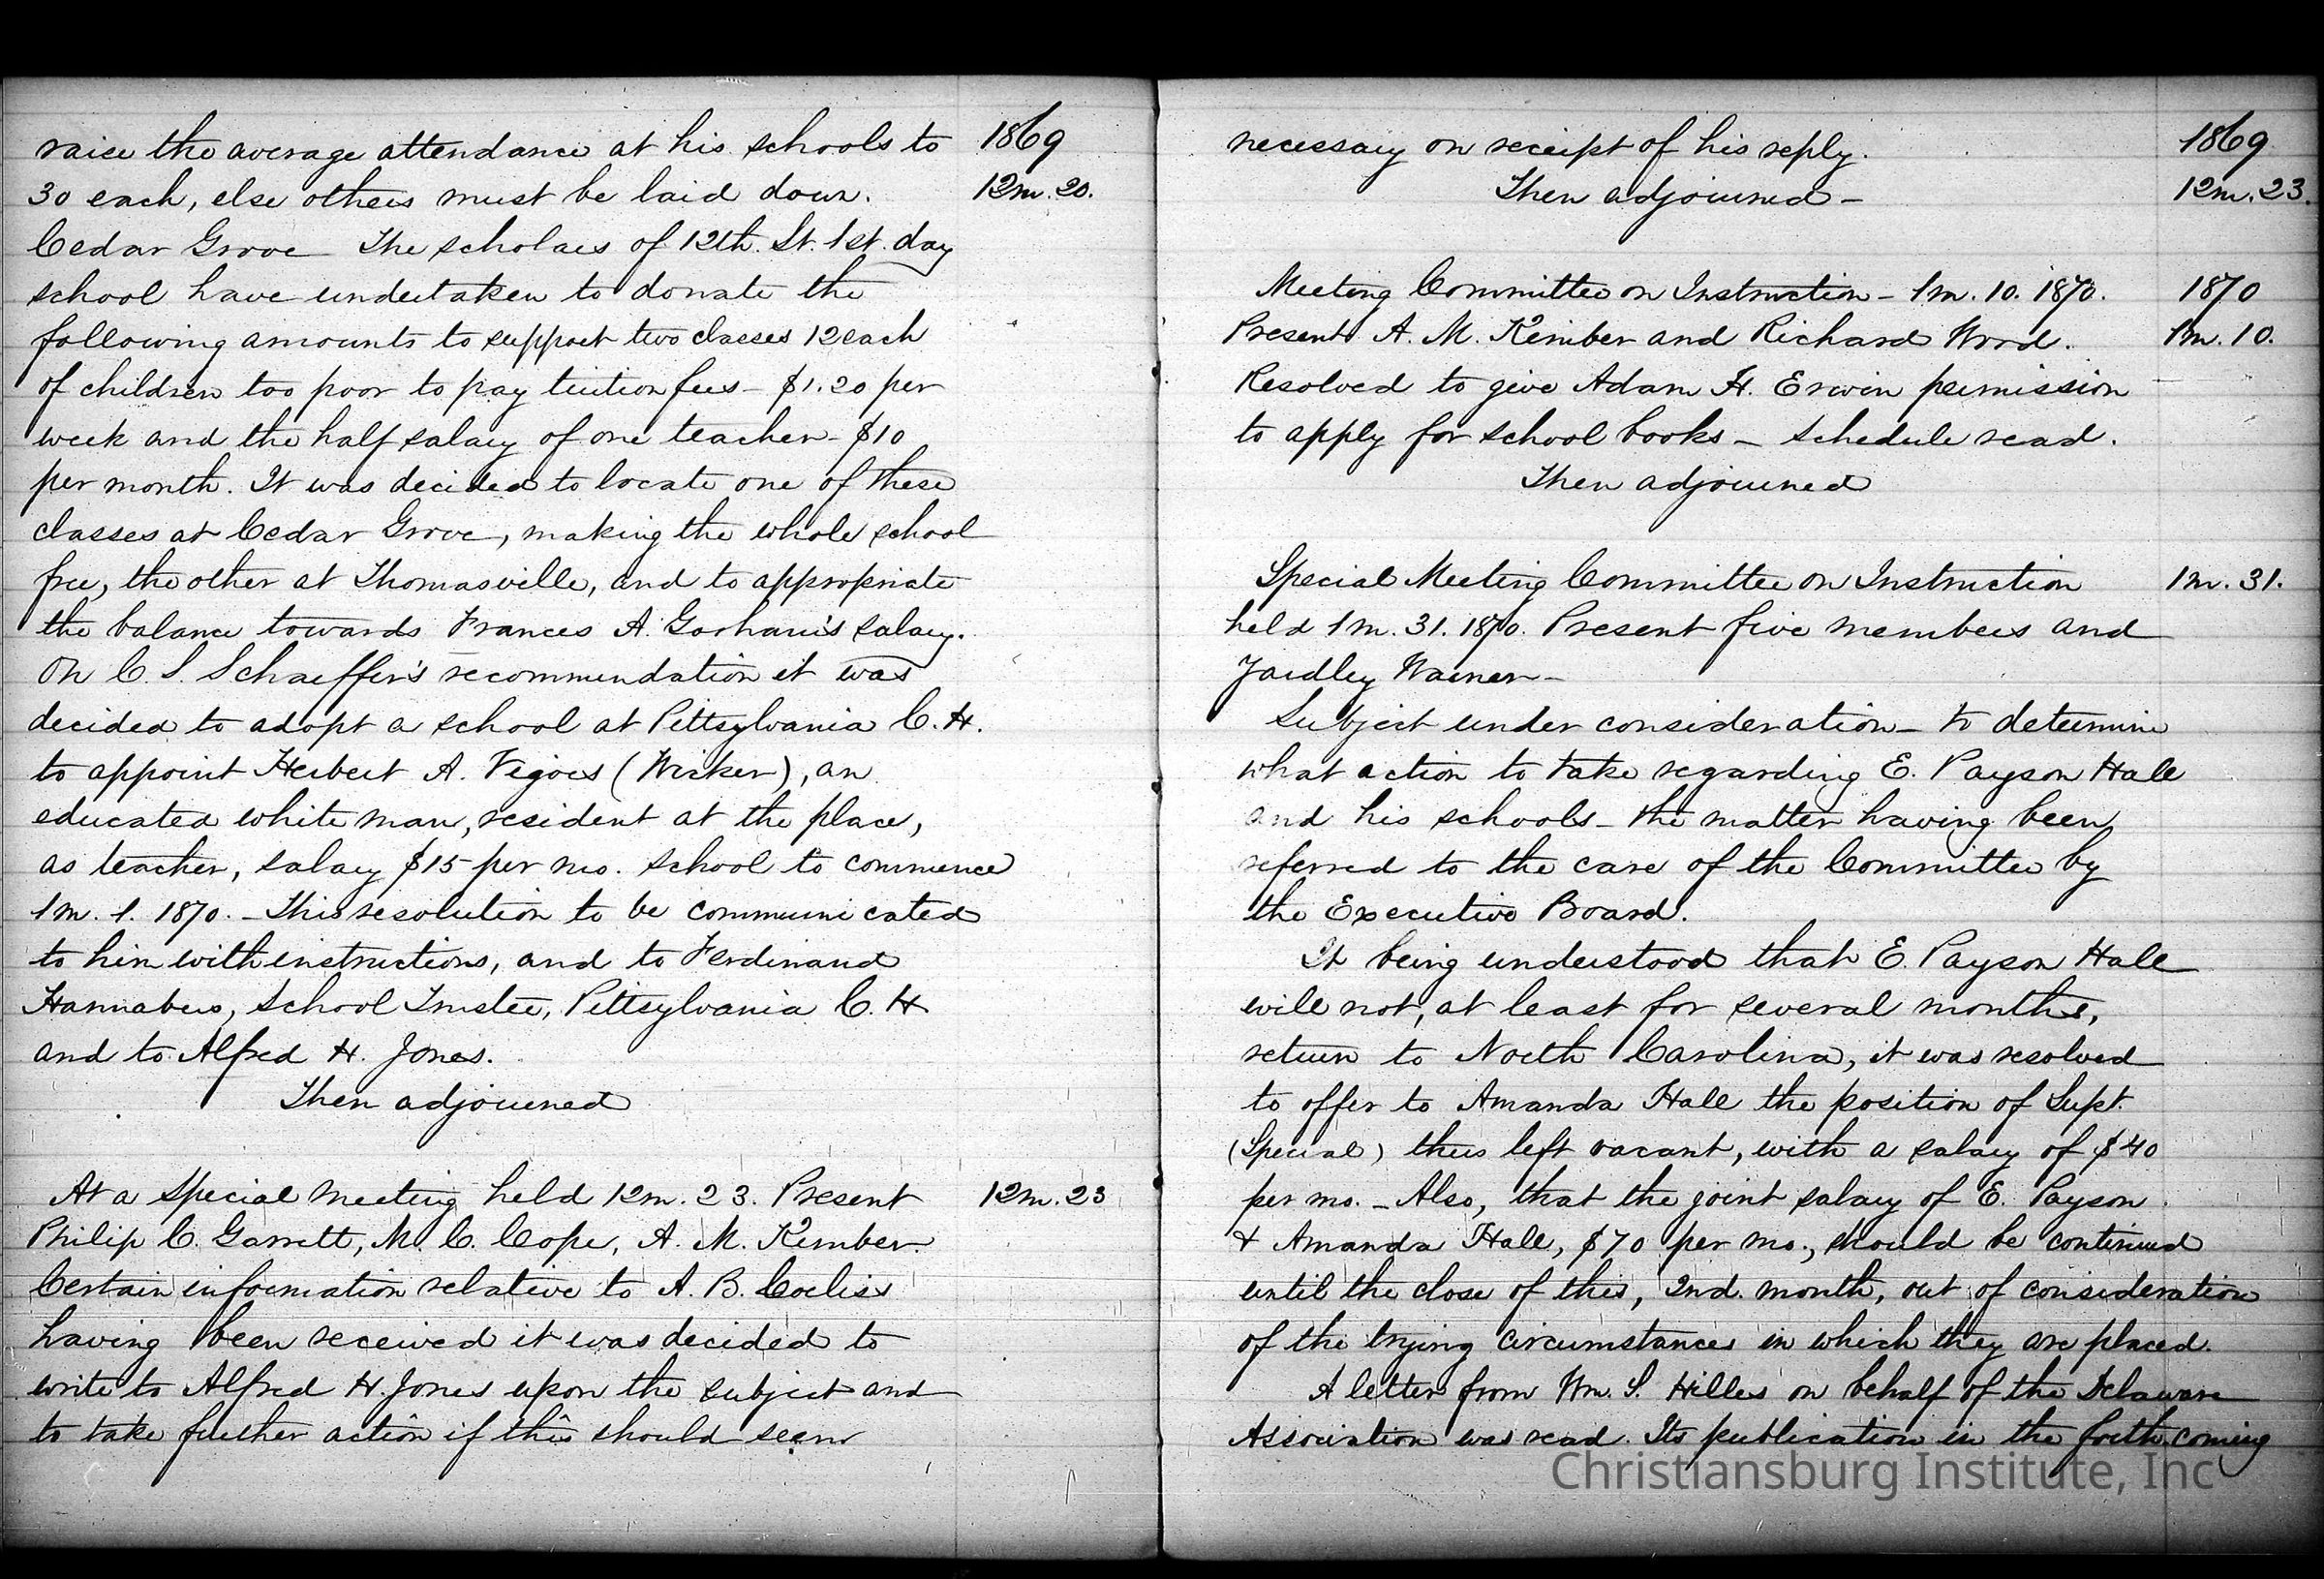 raise the average attendance at his schools to 1869
30 each, else others must be laid down. 12m. 20.
Cedar Grove The scholars of 12th. St. 1st. day
school have undertaken to donate the
following amounts to support two classes 12 each
of children too poor to pay tuition fees - $1.20 per
week and the half salary of one teacher - $10
per month. It was decided to locate one of these
classes at Cedar Grove, making the whole school
free, the other at Thomasville, and to appropriate
the balance towards Frances A. Gorham's salary.
On C. S. Schaeffer's recommendation it was
decided to adopt a school at Pittsylvania C. H.
to appoint Herbert A. (Wicker), an
educated white man, resident at the place,
as teacher, salary $15 per mo. school to commence
1m. 1. 1870. - This resolution to be communicated
to him with instructions, and to Ferdinand
School Trustee, Pittsylvania C. H
and to Alfred H. Jones.
Then adjourned
At a special meeting held 12m. 23. Present 12m. 23
Philip C. Garrett, M. C. Cope, A. M. Kimber.
Certain information relative to A. B. Corliss
having been received it was decided to
write to Alfred H. Jones upon the subject and
to take further action if this should seem
necessary on receipt of his reply. 1869
Then adjourned - 12m. 23.
Meeting Committee on Instruction - 1m. 10. 1870. 1870
Present A. M. Kimber and Richard Wood. 1m. 10.
Resolved to give Adam H. Erwin permission
to apply for school books - Schedule read.
Then adjourned
Special Meeting Committee on Instruction 1m. 31.
held 1m. 31. 1870. Present five members and
Yardley Warner -
Subject under consideration - to determine
what action to take regarding E. Payson Hall
and his schools - the matter having been
referred to the care of the Committee by
the Executive Board.
It being understood that E. Payson Hall
will not, at least for several months,
return to North Carolina, it was resolved
to offer to Amanda Hall the position of Supt.
(Special) thus left vacant, with a salary of $40
per mo. - Also, that the joint salary of E. Payson
& Amanda Hall, $70 per mo., should be continued
until the close of this, 2nd. month, out of consideration
of the trying circumstances in which they are placed.
A letter from Wm. S. Hilles on behalf of the Delaware
Association was read. Its publication in the forth coming
Christiansburg Institute, Inc